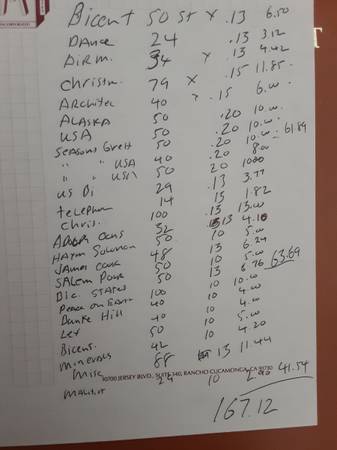 Bicent 50 St x .13 6.50
Dance 24 .13 3.12
AirM. 34 x .13 4.42
Christm. 79 x .15 11.85
Architec 40 x .15 6.00
Alaska 50 .20 10.00
USA 50 .20 10.00
Seasons Greet 50 .20 10.00 = 61.89
" " USA 40 .20 8.00
" " USA 50 20 1000
US Bi 29 .13 3.77
Telephon 14 .13 1.82
Chris. 100 .13 13.00
Adopt Cons 32 13 4.16
Haym Solomon 50 10 5.00
James Cook 48 13 6.24
Salem Poor 50 10 5.00
Bic. States 50 13 6.76 63.69
Peace on Earth 100 10 10.00
Dante Hill 40 10 4.00
Lex 40 10 4.00
Bicens. 50 10 5.00
Minerals 42 10 4.20
Misc 88 13 11.44
10700 JERSEY BLVD., SUITE 340, RANCHO CUCAMONGA, CA 91730
24 10 41.54
167.12